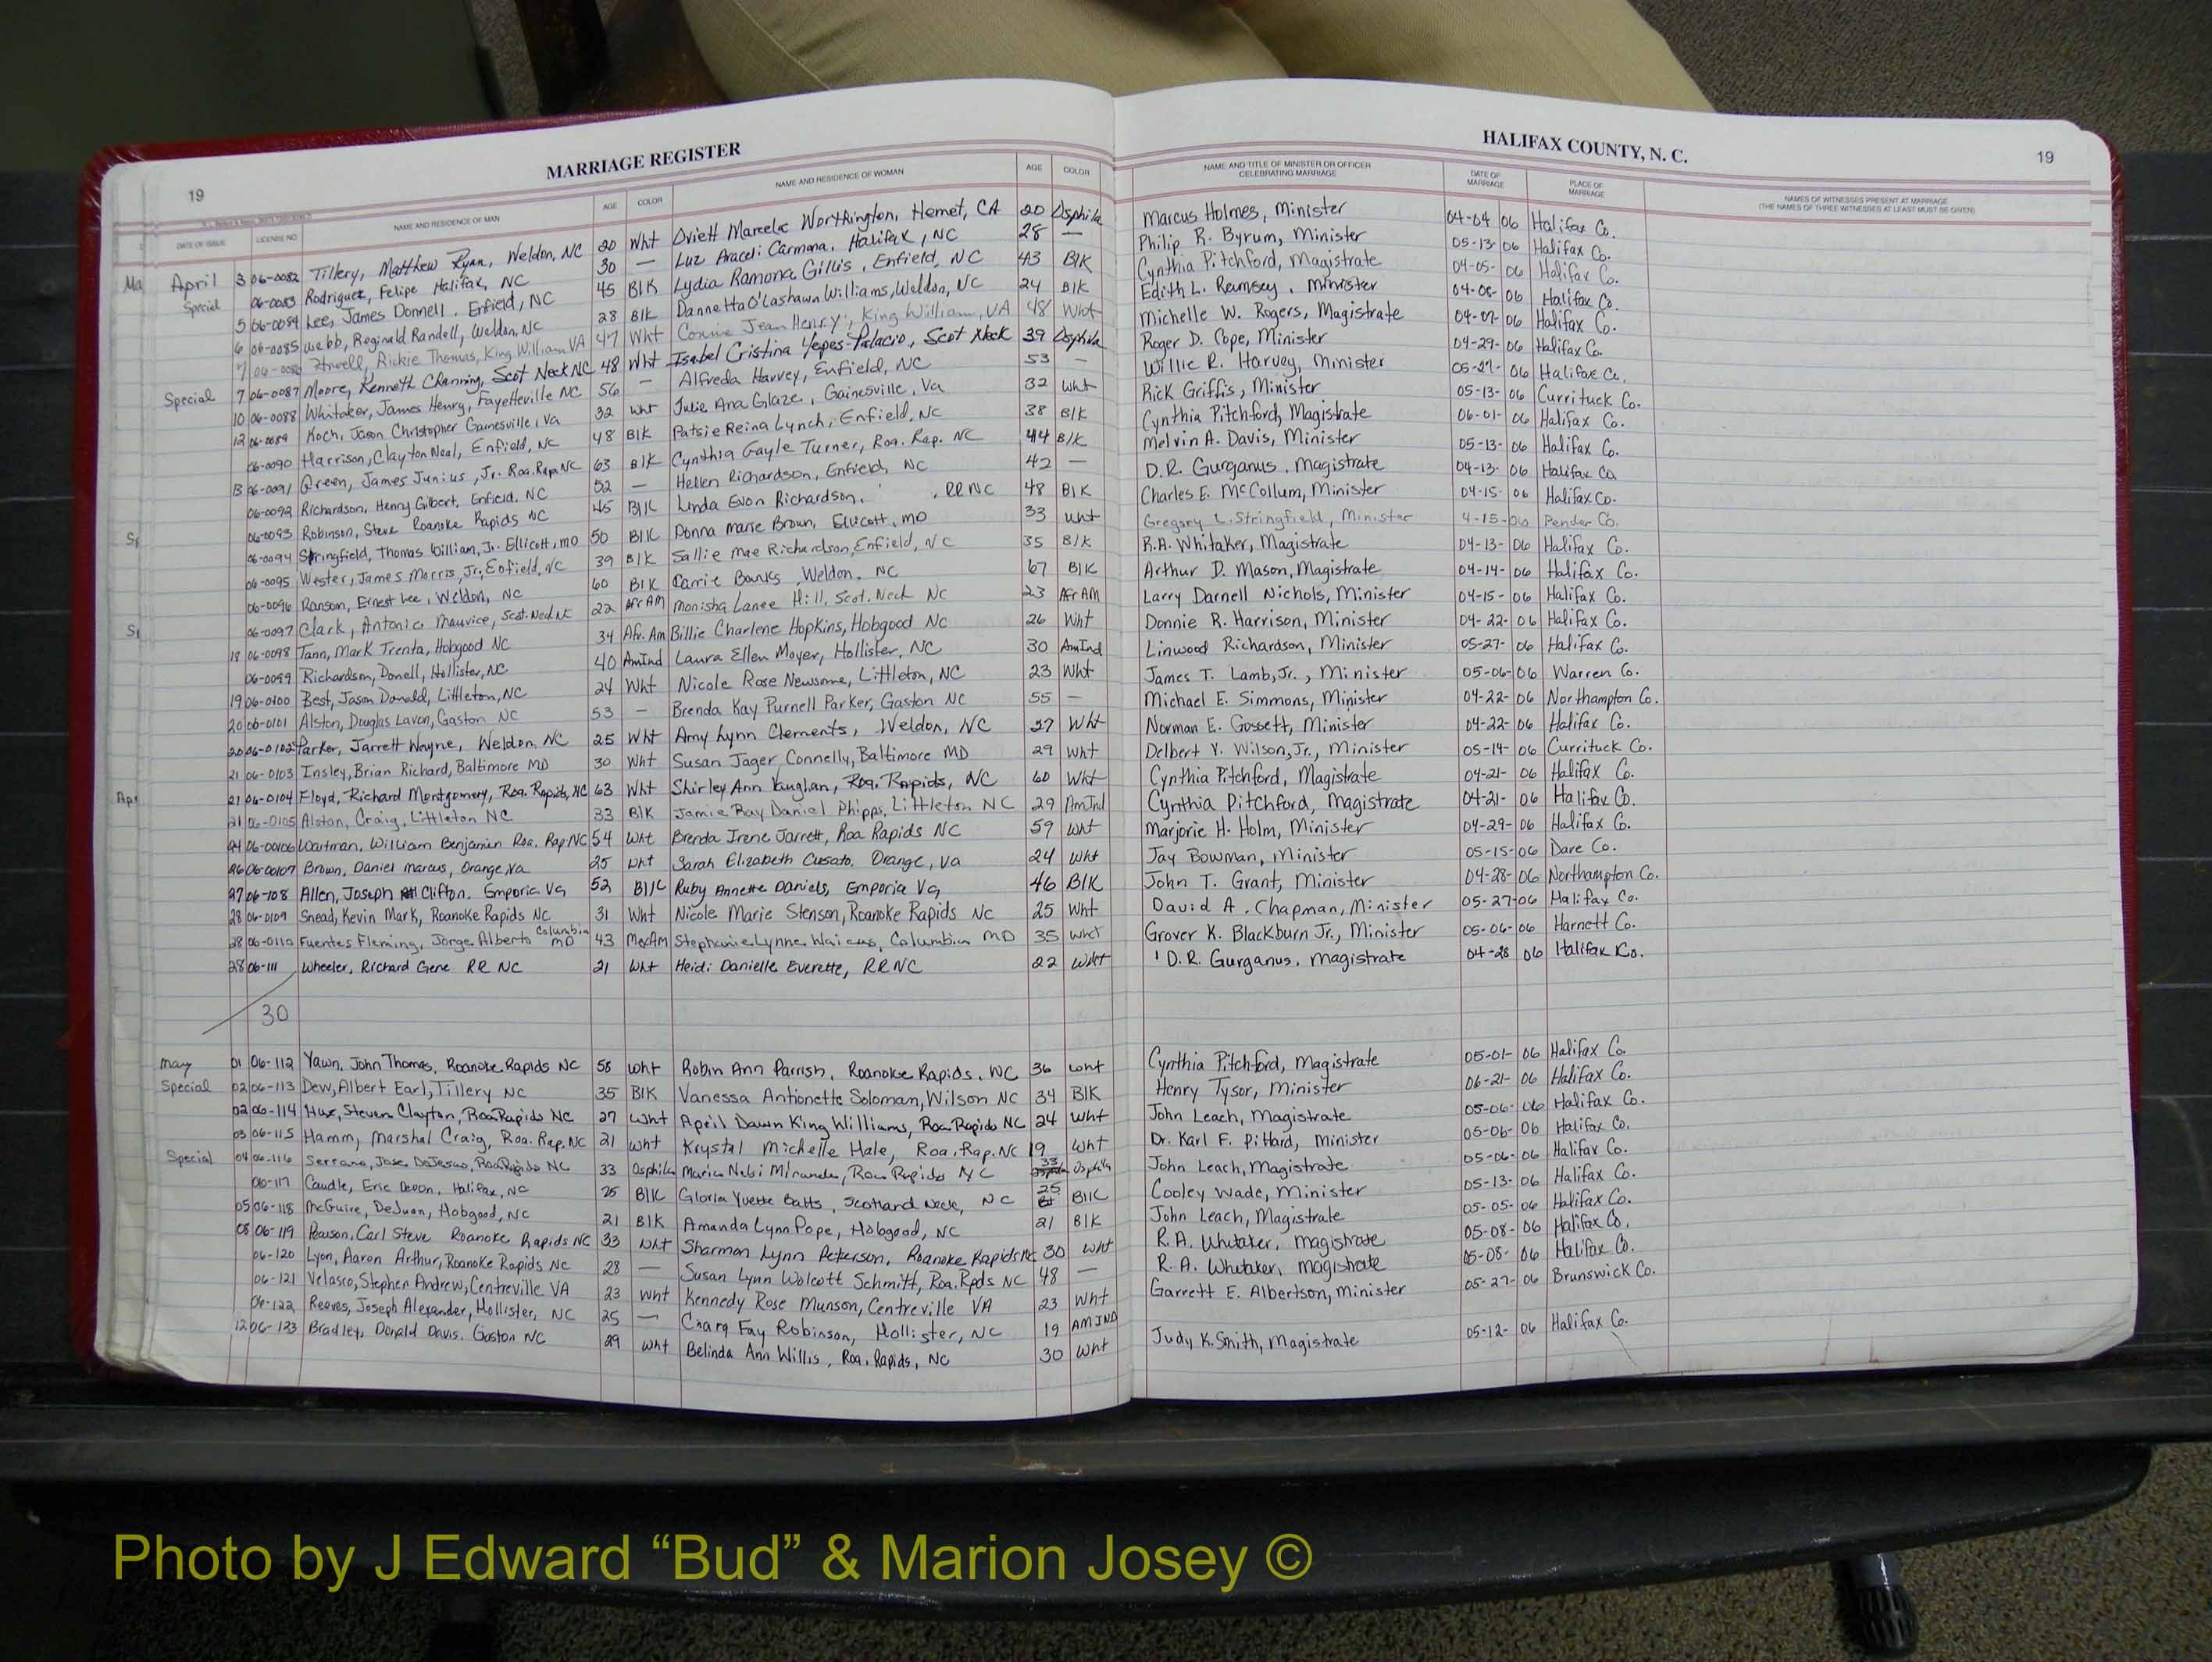 MARRIAGE REGISTER
HALIFAX COUNTY, N. C.
19
19
DATE OF ISSUE LICENSE NO. NAME AND RESIDENCE OF MAN AGE COLOR NAME AND RESIDENCE OF WOMAN AGE COLOR NAME AND TITLE OF MINISTER OR OFFICER CELEBRATING MARRIAGE DATE OF MARRIAGE PLACE OF MARRIAGE NAMES OF WITNESSES PRESENT AT MARRIAGE (THE NAMES OF THREE WITNESSES AT LEAST MUST BE GIVEN)
Ma April 3 06-0082 Tillery, Matthew Ryan, Weldon, NC 20 Wht Oviett Marcela Worthington, Hemet, CA 20 Marcus Holmes, Minister 04-04 06 Halifax Co.
Special 06-0083 Rodriguez, Felipe Halifax, NC 30 — Luz Araceli Carmona, Halifax, NC 28 — Philip R. Byrum, Minister 05-13-06 Halifax Co.
5 06-0084 Lee, James Donnell. Enfield, NC 45 Blk Lydia Ramona Gillis, Enfield, NC 43 Blk Cynthia Pitchford, Magistrate 04-05-06 Halifax Co.
6 06-0085 Webb, Reginald Randell, Weldon, NC 28 Blk Dannetta O'Lashawn Williams, Weldon, NC 24 Blk Edith L. Ramsey, Minister 04-08-06 Halifax Co.
7 06-0086 Rickie Thomas, King William VA 47 Wht Connie Jean Henry, King William, VA 48 Wht Michelle W. Rogers, Magistrate 04-07-06 Halifax Co.
Special 7 06-0087 Moore, Kenneth Channing, Scot Neck NC 48 Wht Isabel Cristina Yepes-Palacio, Scot Neck 39 Roger D. Cope, Minister 04-29-06 Halifax Co.
10 06-0088 Whitaker, James Henry, Fayetteville NC 56 — Alfreda Harvey, Enfield, NC 53 — Willie R. Harvey, Minister 05-27-06 Halifax Co.
12 06-0089 Koch, Jason Christopher Gainesville, Va 32 Wht Julie Ana Glaze, Gainesville, Va 32 Wht Rick Griffis, Minister 05-13-06 Currituck Co.
06-0090 Harrison, Clayton Neal, Enfield, NC 48 Blk Patsie Reina Lynch, Enfield, NC 38 Blk Cynthia Pitchford, Magistrate 06-01-06 Halifax Co.
13 06-0091 Green, James Junius, Jr. Roa. Rap. NC 63 Blk Cynthia Gayle Turner, Roa. Rap. NC 44 Blk Melvin A. Davis, Minister 05-13-06 Halifax Co.
06-0092 Richardson, Henry Gilbert, Enfield, NC 52 — Hellen Richardson, Enfield, NC 42 — D.R. Gurganus, Magistrate 04-13-06 Halifax Co
06-0093 Robinson, Steve Roanoke Rapids NC 45 Blk Linda Evon Richardson, RR NC 48 Blk Charles E. McCollum, Minister 04-15-06 Halifax Co.
06-0094 Springfield, Thomas William, Jr. Ellicott, MD 50 Blk Donna Marie Brown, Ellicott, MD 33 Wht Gregory L. Stringfield, Minister 4-15-06 Pender Co.
06-0095 Wester, James Morris, Jr, Enfield, NC 39 Blk Sallie Mae Richardson, Enfield, NC 35 Blk R.A. Whitaker, Magistrate 04-13-06 Halifax Co.
06-0096 Ransom, Ernest Lee, Weldon, NC 60 Blk Carrie Banks, Weldon, NC 67 Blk Arthur D. Mason, Magistrate 04-14-06 Halifax Co.
06-0097 Clark, Antonio Maurice, Scot. Neck NC 22 Afr AM Monisha Lanee Hill, Scot. Neck NC 23 Afr AM Larry Darnell Nichols, Minister 04-15-06 Halifax Co.
18 06-0098 Tann, Mark Trenta, Hobgood NC 34 Afr. Am Billie Charlene Hopkins, Hobgood NC 26 Wht Donnie R. Harrison, Minister 04-22-06 Halifax Co.
06-0099 Richardson, Donell, Hollister, NC 40 AmInd Laura Ellen Moyer, Hollister, NC 30 AmInd Linwood Richardson, Minister 05-27-06 Halifax Co.
19 06-0100 Best, Jason Donald, Littleton, NC 24 Wht Nicole Rose Newsome, Littleton, NC 23 Wht James T. Lamb, Jr., Minister 05-06-06 Warren Co.
20 06-0101 Alston, Douglas Lavon, Gaston NC 53 — Brenda Kay Purnell Parker, Gaston NC 55 — Michael E. Simmons, Minister 04-22-06 Northampton Co.
20 06-0102 Parker, Jarrett Wayne, Weldon, NC 25 Wht Amy Lynn Clements, Weldon, NC 27 Wht Norman E. Gossett, Minister 04-22-06 Halifax Co.
21 06-0103 Insley, Brian Richard, Baltimore MD 30 Wht Susan Jager Connelly, Baltimore MD 29 Wht Delbert V. Wilson, Jr., Minister 05-14-06 Currituck Co.
Apr 21 06-0104 Floyd, Richard Montgomery, Roa. Rapids, NC 63 Wht Shirley Ann Vaughan, Roa. Rapids, NC 60 Wht Cynthia Pitchford, Magistrate 04-21-06 Halifax Co.
21 06-0105 Alston, Craig, Littleton NC 33 Blk Jamie Ray Daniel Phipps, Littleton NC 29 AmInd Cynthia Pitchford, Magistrate 04-21-06 Halifax Co.
24 06-00106 Waitman, William Benjamin Roa. Rap NC 54 Wht Brenda Irene Jarrett, Roa Rapids NC 59 Wht Marjorie H. Holm, Minister 04-29-06 Halifax Co.
26 06-00107 Brown, Daniel Marcus, Orange, Va 25 Wht Sarah Elizabeth Cusato, Orange, Va 24 Wht Jay Bowman, Minister 05-15-06 Dare Co.
27 06-108 Allen, Joseph Clifton. Emporia Va 52 Blk Ruby Annette Daniels, Emporia Va 46 Blk John T. Grant, Minister 04-28-06 Northampton Co.
28 06-0109 Snead, Kevin Mark, Roanoke Rapids NC 31 Wht Nicole Marie Stenson, Roanoke Rapids NC 25 Wht David A. Chapman, Minister 05-27-06 Halifax Co.
28 06-0110 Fuentes Fleming, Jorge Alberto Columbia MD 43 MexAm Stephanie Lynne Columbia MD 35 Wht Grover K. Blackburn Jr., Minister 05-06-06 Harnett Co.
28 06-111 Wheeler, Richard Gene RR NC 21 Wht Heidi Danielle Everette, RR NC 22 Wht D.R. Gurganus, Magistrate 04-28 06 Halifax Co.
30
May 01 06-112 Yawn, John Thomas, Roanoke Rapids NC 58 Wht Robin Ann Parrish, Roanoke Rapids, NC 36 Wht Cynthia Pitchford, Magistrate 05-01-06 Halifax Co.
Special 02 06-113 Dew, Albert Earl, Tillery NC 35 Blk Vanessa Antionette Soloman, Wilson NC 34 Blk Henry Tysor, Minister 06-21-06 Halifax Co.
02 06-114 Hux, Steven Clayton, Roa Rapids NC 27 Wht April Dawn King Williams, Roa Rapids NC 24 Wht John Leach, Magistrate 05-06-06 Halifax Co.
03 06-115 Hamm, Marshal Craig, Roa. Rap. NC 21 Wht Krystal Michelle Hale, Roa. Rap. NC 19 Wht Dr. Karl F. Pittard, Minister 05-06-06 Halifax Co.
Special 04 06-116 Serrano, Jose DeJesus, Roa Rapids NC 33 Maria Miranda, Roa Rapids NC 33 John Leach, Magistrate 05-06-06 Halifax Co.
06-117 Caudle, Eric Devon, Halifax, NC 25 Blk Gloria Yvette Batts, Scotland Neck, NC 25 Blk Cooley Wade, Minister 05-13-06 Halifax Co.
05 06-118 McGuire, DeJuan, Hobgood, NC 21 Blk Amanda Lynn Pope, Hobgood, NC 21 Blk John Leach, Magistrate 05-05-06 Halifax Co.
08 06-119 Pearson, Carl Steve Roanoke Rapids NC 33 Wht Sharmon Lynn Peterson, Roanoke Rapids NC 30 Wht R.A. Whitaker, Magistrate 05-08-06 Halifax Co.
06-120 Lyon, Aaron Arthur, Roanoke Rapids NC 28 — Susan Lynn Wolcott Schmitt, Roa. Rpds NC 48 — R.A. Whitaker, Magistrate 05-08-06 Halifax Co.
06-121 Velasco, Stephen Andrew, Centreville VA 23 Wht Kennedy Rose Munson, Centreville VA 23 Wht Garrett E. Albertson, Minister 05-27-06 Brunswick Co.
06-122 Reaves, Joseph Alexander, Hollister, NC 25 — Fay Robinson, Hollister, NC 19 AMIND
12 06-123 Bradley, Donald Davis. Gaston NC 29 Wht Belinda Ann Willis, Roa. Rapids, NC 30 Wht Judy K. Smith, Magistrate 05-12-06 Halifax Co.
Photo by J Edward “Bud” & Marion Josey ©